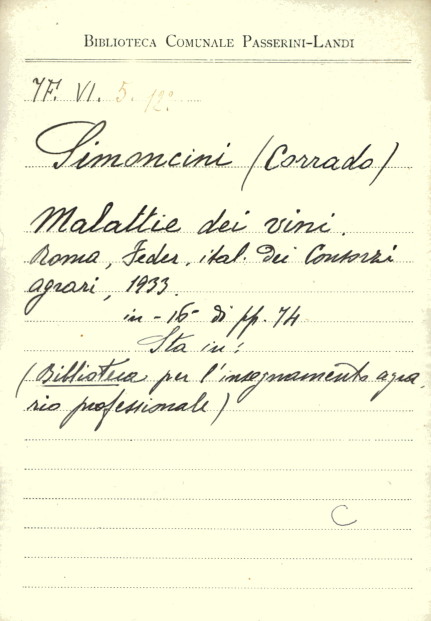 BIBLIOTECA COMUNALE PASSERINI-LANDI
7F. VI. 5. 12º
Simoncini (Corrado)
Malattie dei vini.
Roma, Feder. ital. dei Consorzi
agrari, 1933.
in-16º di pp. 74
Sta in:
(Biblioteca per l'insegnamento agra.
rio professionale)
C